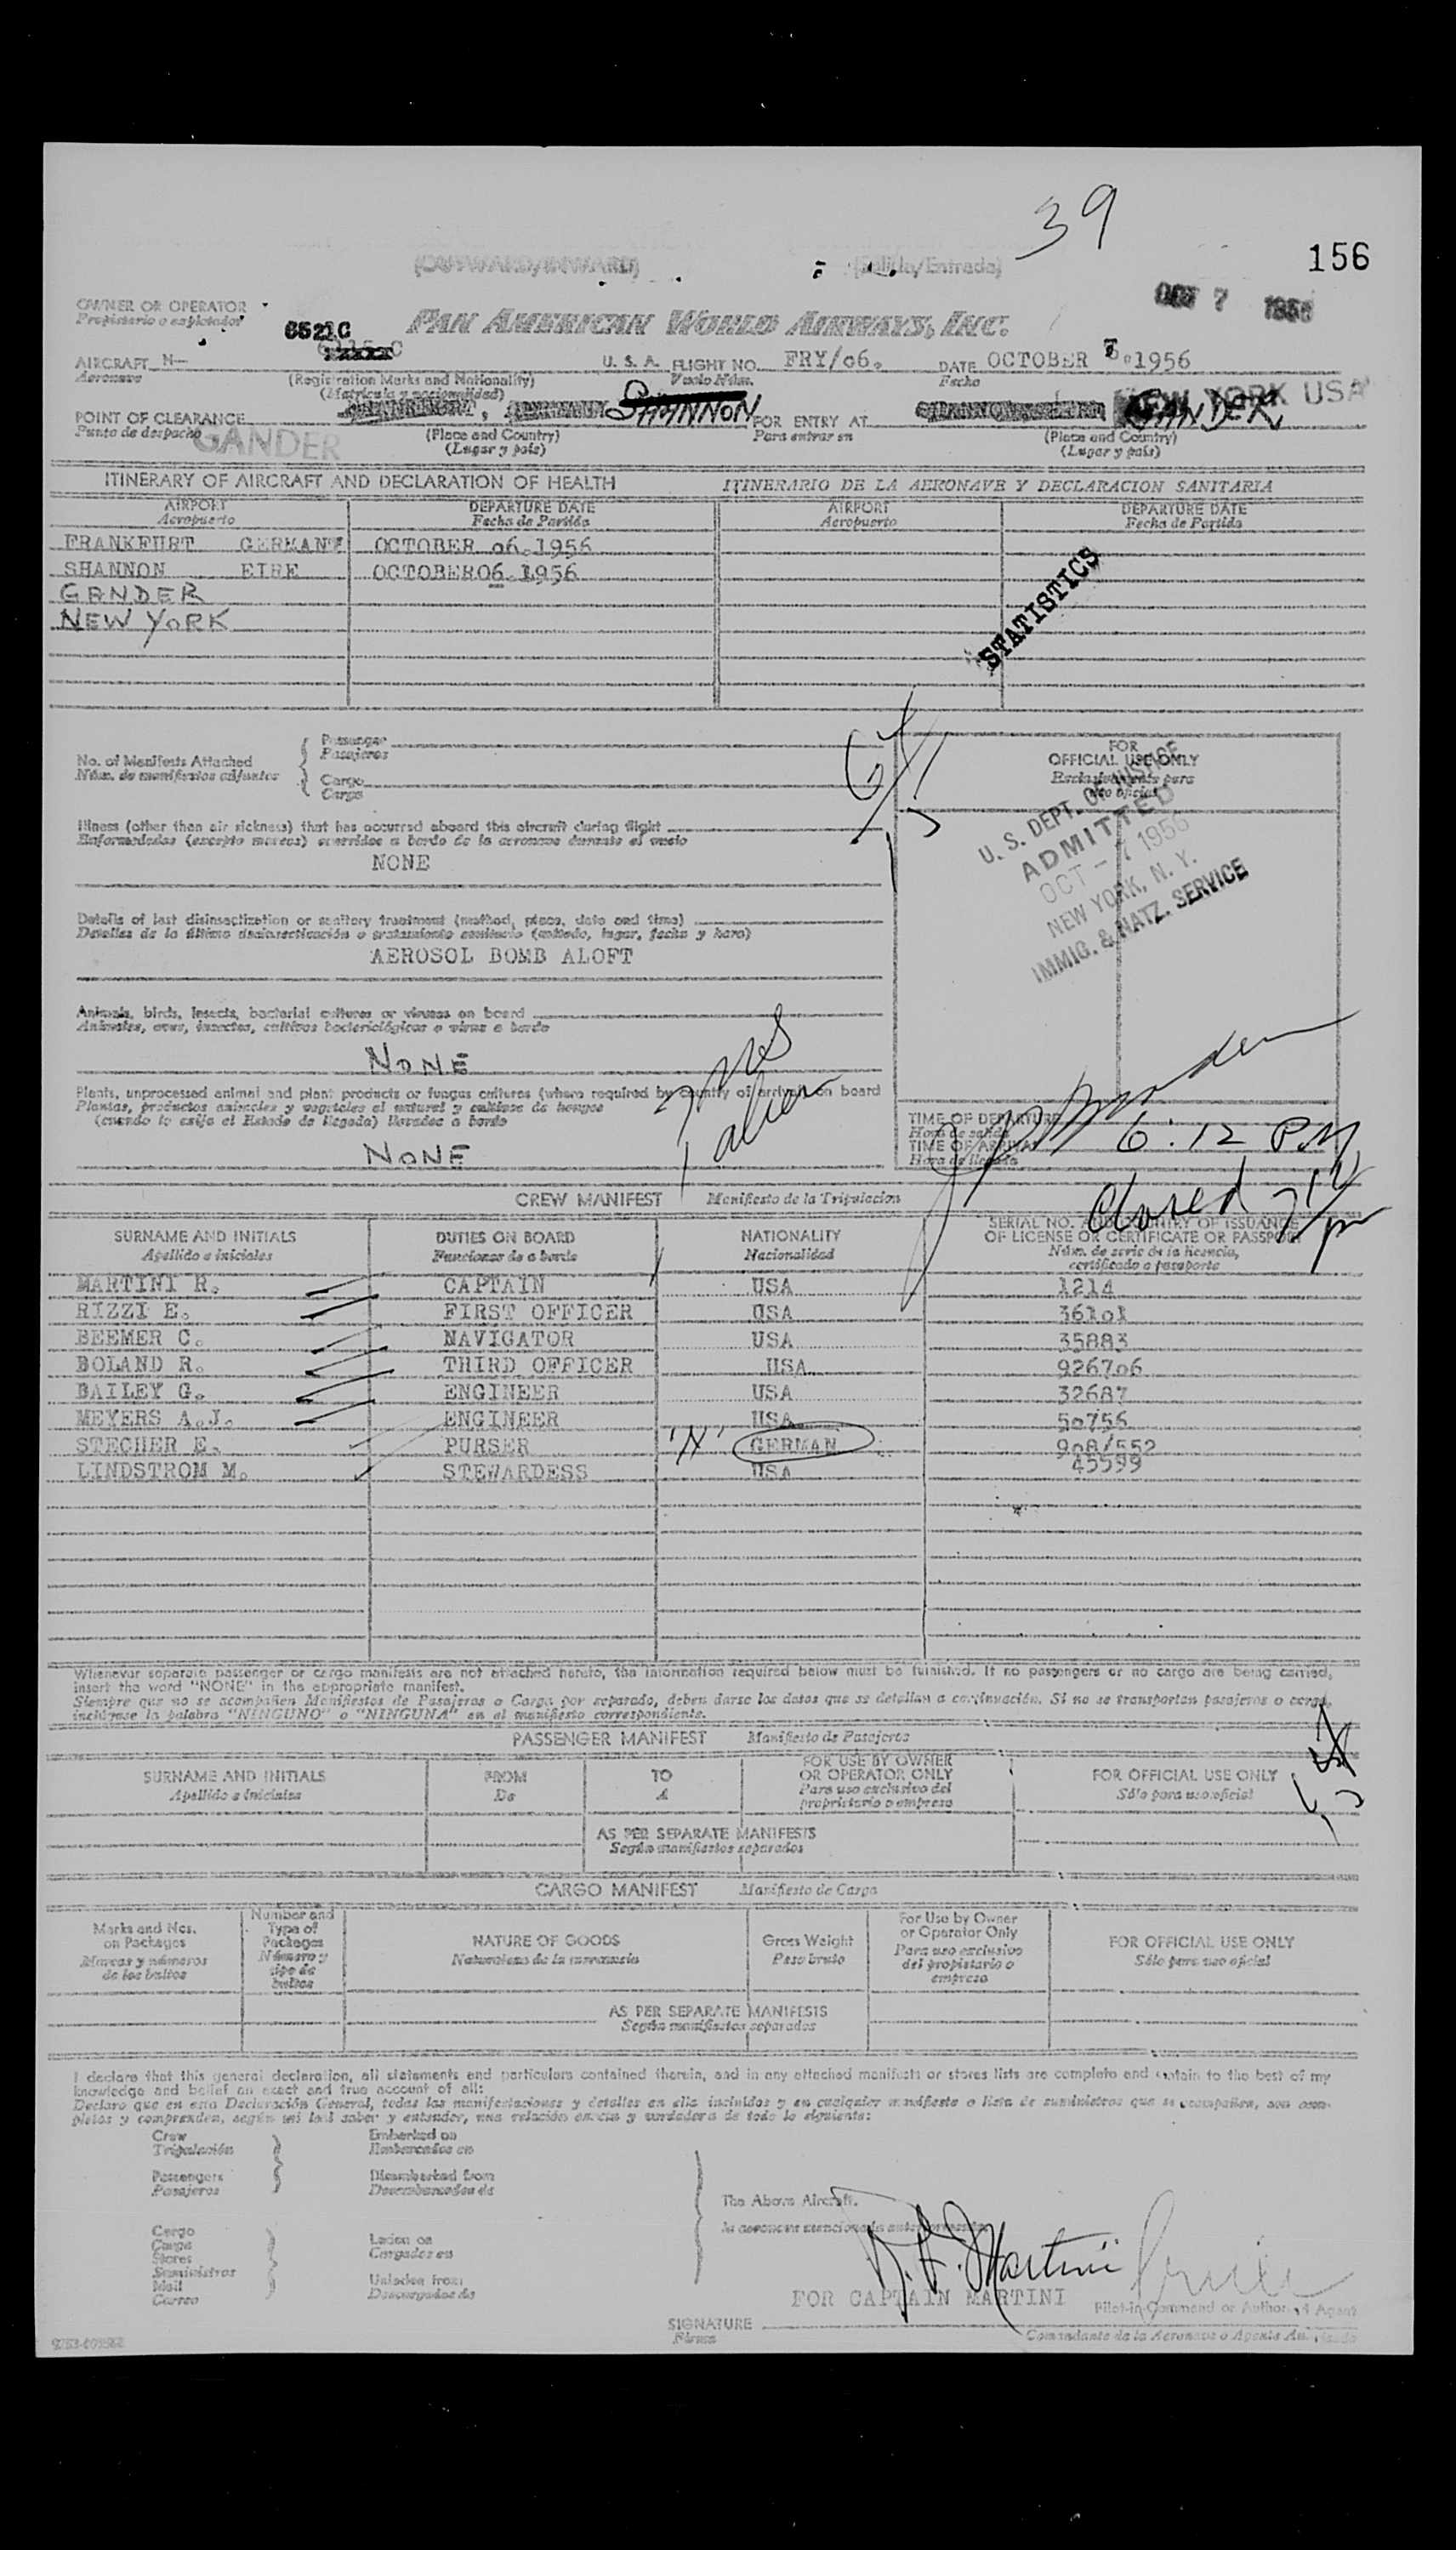 39
156
(OUTWARD/INWARD) (Salida/Entrada)
OCT 7 1956
OWNER OR OPERATOR
Propietario o explotador
PAN AMERICAN WORLD AIRWAYS, INC.
6521C
AIRCRAFT N- U. S. A. FLIGHT NO. FRY/06. DATE OCTOBER 1956
Aeronave (Registration Marks and Nationality) Vuelo Núm. Fecha
(Matrícula y nacionalidad)
NEW YORK USA
POINT OF CLEARANCE SHANNON FOR ENTRY AT GANDER
Punto de despacho GANDER (Place and Country) Para entrar en (Place and Country)
(Lugar y país) (Lugar y país)
ITINERARY OF AIRCRAFT AND DECLARATION OF HEALTH ITINERARIO DE LA AERONAVE Y DECLARACION SANITARIA
AIRPORT DEPARTURE DATE AIRPORT DEPARTURE DATE
Aeropuerto Fecha de Partida Aeropuerto Fecha de Partida
FRANKFURT GERMANY OCTOBER 06.1956
SHANNON EIRE OCTOBER06.1956
GANDER
NEW YORK
STATISTICS
No. of Manifests Attached
Núm. de manifiestos adjuntos
Passenger
Pasajeros
Cargo
Carga
FOR
OFFICIAL USE ONLY
Exclusivamente para
uso oficial
U. S. DEPT. OF JUSTICE
ADMITTED
OCT - 7 1956
NEW YORK, N. Y.
IMMIG. & NATZ. SERVICE
Illness (other than air sickness) that has occurred aboard this aircraft during flight
Enfermedades (excepto mareos) ocurridas a bordo de la aeronave durante el vuelo
NONE
Details of last disinsectization or sanitary treatment (method, place, date and time)
Detalles de la última desinsectización o tratamiento sanitario (método, lugar, fecha y hora)
AEROSOL BOMB ALOFT
Animals, birds, insects, bacterial cultures or viruses on board
Animales, aves, insectos, cultivos bacteriológicos o virus a bordo
NONE
Plants, unprocessed animal and plant products or fungus cultures (where required by country of arrival) on board
Plantas, productos animales y vegetales al natural y cultivos de hongos
(cuando lo exija el Estado de llegada) llevados a bordo
NONE
TIME OF DEPARTURE
Hora de salida
TIME OF ARRIVAL
Hora de llegada
6:12 PM
Closed
CREW MANIFEST Manifiesto de la Tripulacion
SURNAME AND INITIALS DUTIES ON BOARD NATIONALITY SERIAL NO. AND COUNTRY OF ISSUANCE
OF LICENSE OR CERTIFICATE OR PASSPORT
Apellido e iniciales Funciones de a bordo Nacionalidad Núm. de serie de la licencia,
certificado o pasaporte
MARTINI R. CAPTAIN USA 1214
RIZZI E. FIRST OFFICER USA 36101
BEEMER C. NAVIGATOR USA 35883
BOLAND R. THIRD OFFICER USA 926706
BAILEY G. ENGINEER USA 32687
MEYERS A.J. ENGINEER USA 50756
STECHER E. PURSER "N" GERMAN 908/552
LINDSTROM M. STEWARDESS USA 45599
Whenever separate passenger or cargo manifests are not attached hereto, the information required below must be furnished. If no passengers or no cargo are being carried,
insert the word "NONE" in the appropriate manifest.
Siempre que no se acompañen Manifiestos de Pasajeros o Carga por separado, deben darse los datos que se detallan a continuación. Si no se transportan pasajeros o carga,
inclúyase la palabra "NINGUNO" o "NINGUNA" en el manifiesto correspondiente.
PASSENGER MANIFEST Manifiesto de Pasajeros
SURNAME AND INITIALS FROM TO FOR USE BY OWNER
OR OPERATOR ONLY FOR OFFICIAL USE ONLY
Apellido e Iniciales De A Para uso exclusivo del
propietario o empresa Sólo para uso oficial
AS PER SEPARATE MANIFESTS
Según manifiestos separados
CARGO MANIFEST Manifiesto de Carga
Marks and Nos.
on Packages
Marcas y números
de los bultos
Number and
Type of
Packages
Número y
tipo de
bultos
NATURE OF GOODS
Naturaleza de la mercancía
Gross Weight
Peso bruto
For Use by Owner
or Operator Only
Para uso exclusivo
del propietario o
empresa
FOR OFFICIAL USE ONLY
Sólo para uso oficial
AS PER SEPARATE MANIFESTS
Según manifiestos separados
I declare that this general declaration, all statements and particulars contained therein, and in any attached manifests or stores lists are complete and contain to the best of my
knowledge and belief an exact and true account of all:
Declaro que en esta Declaración General, todas las manifestaciones y detalles en ella incluidos y en cualquier manifiesto o lista de suministros que se acompañen, son com-
pletos y comprenden, según mi leal saber y entender, una relación exacta y verdadera de todo lo siguiente:
Crew
Tripulación
Passengers
Pasajeros
Embarked on
Embarcados en
Disembarked from
Desembarcados de
Cargo
Carga
Stores
Suministros
Mail
Correo
Laden on
Cargados en
Unladen from
Descargados de
The Above Aircraft.
la aeronave mencionada anteriormente
R. F. Martini
FOR CAPTAIN MARTINI Pilot-in-Command or Authorized Agent
SIGNATURE
Firma Comandante de la Aeronave o Agente Autorizado